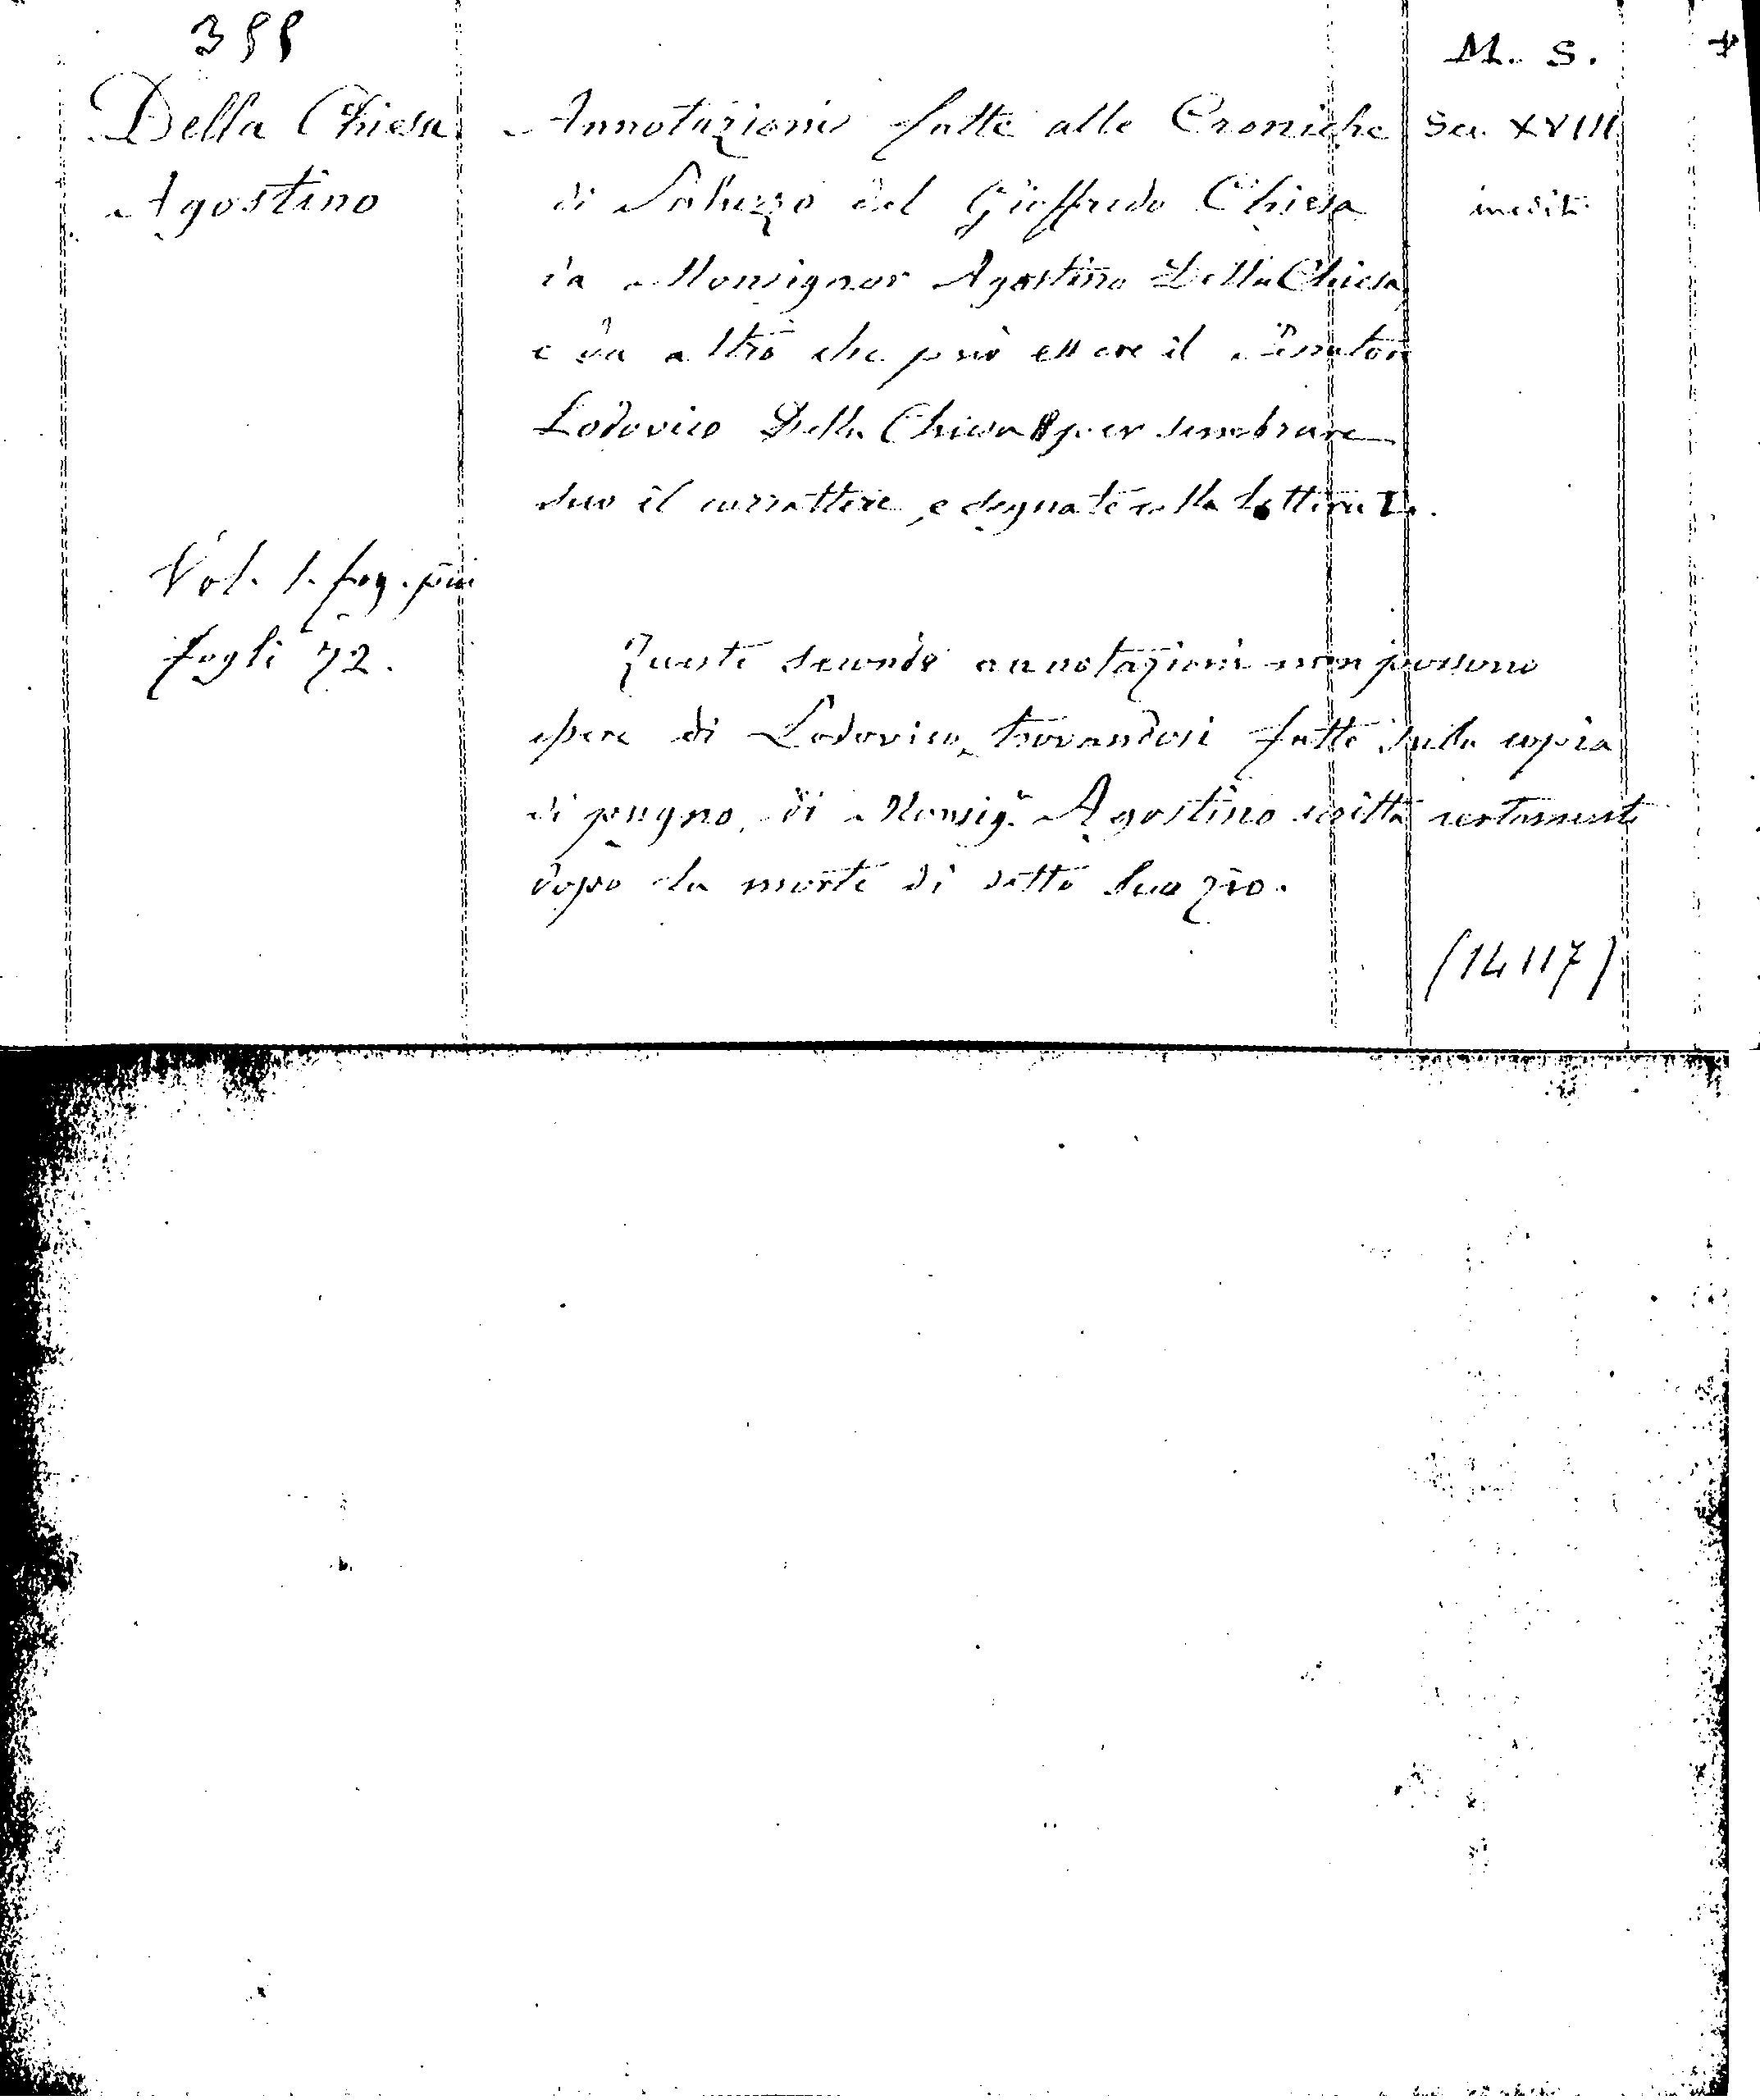 399
M. S.
Della Chiesa
Agostino
Annotazioni fatte alle Croniche
di Saluzzo del Gioffredo Chiesa
da Monsignor Agostino Della Chiesa,
e da altro che può essere il Senatore
Lodovico Della Chiesa per sembrare
suo il carattere, e segnate colla lettera L.
Sec. XVIII
inedit.
Vol. 1. fog. pic.
fogli 72.
Queste seconde annotazioni non possono
essere di Lodovico, trovandosi fatte sulla copia
di pugno di Monsig.r Agostino scritta certamente
dopo la morte di detto suo zio.
(14117)